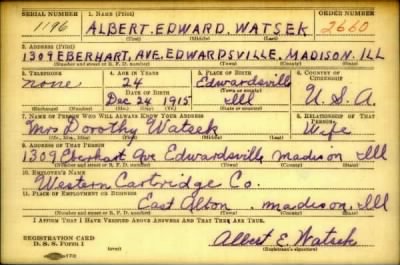 SERIAL NUMBER 1. NAME (Print) ORDER NUMBER
1196 ALBERT EDWARD WATSEK 2660
(First) (Middle) (Last)
2. ADDRESS (Print)
1309 EBERHART AVE. EDWARDSVILLE, MADISON, ILL
(Number and street or R. F. D. number) (Town) (County) (State)
3. TELEPHONE 4. AGE IN YEARS 5. PLACE OF BIRTH 6. COUNTRY OF CITIZENSHIP
none 24 Edwardsville
DATE OF BIRTH (Town or county)
Dec 24 1915 Ill U.S.A.
(Exchange) (Number) (Mo.) (Day) (Yr.) (State or country)
7. NAME OF PERSON WHO WILL ALWAYS KNOW YOUR ADDRESS 8. RELATIONSHIP OF THAT PERSON
Mrs Dorothy Watsek Wife
(Mr., Mrs., Miss) (First) (Middle) (Last)
9. ADDRESS OF THAT PERSON
1309 Eberhart Ave Edwardsville Madison Ill
(Number and street or R. F. D. number) (Town) (County) (State)
10. EMPLOYER'S NAME
Western Cartridge Co.
11. PLACE OF EMPLOYMENT OR BUSINESS
East Alton, Madison, Ill
(Number and street or R. F. D. number) (Town) (County) (State)
I AFFIRM THAT I HAVE VERIFIED ABOVE ANSWERS AND THAT THEY ARE TRUE.
REGISTRATION CARD
D. S. S. Form 1 (over) Albert E. Watsek
(Registrant's signature)